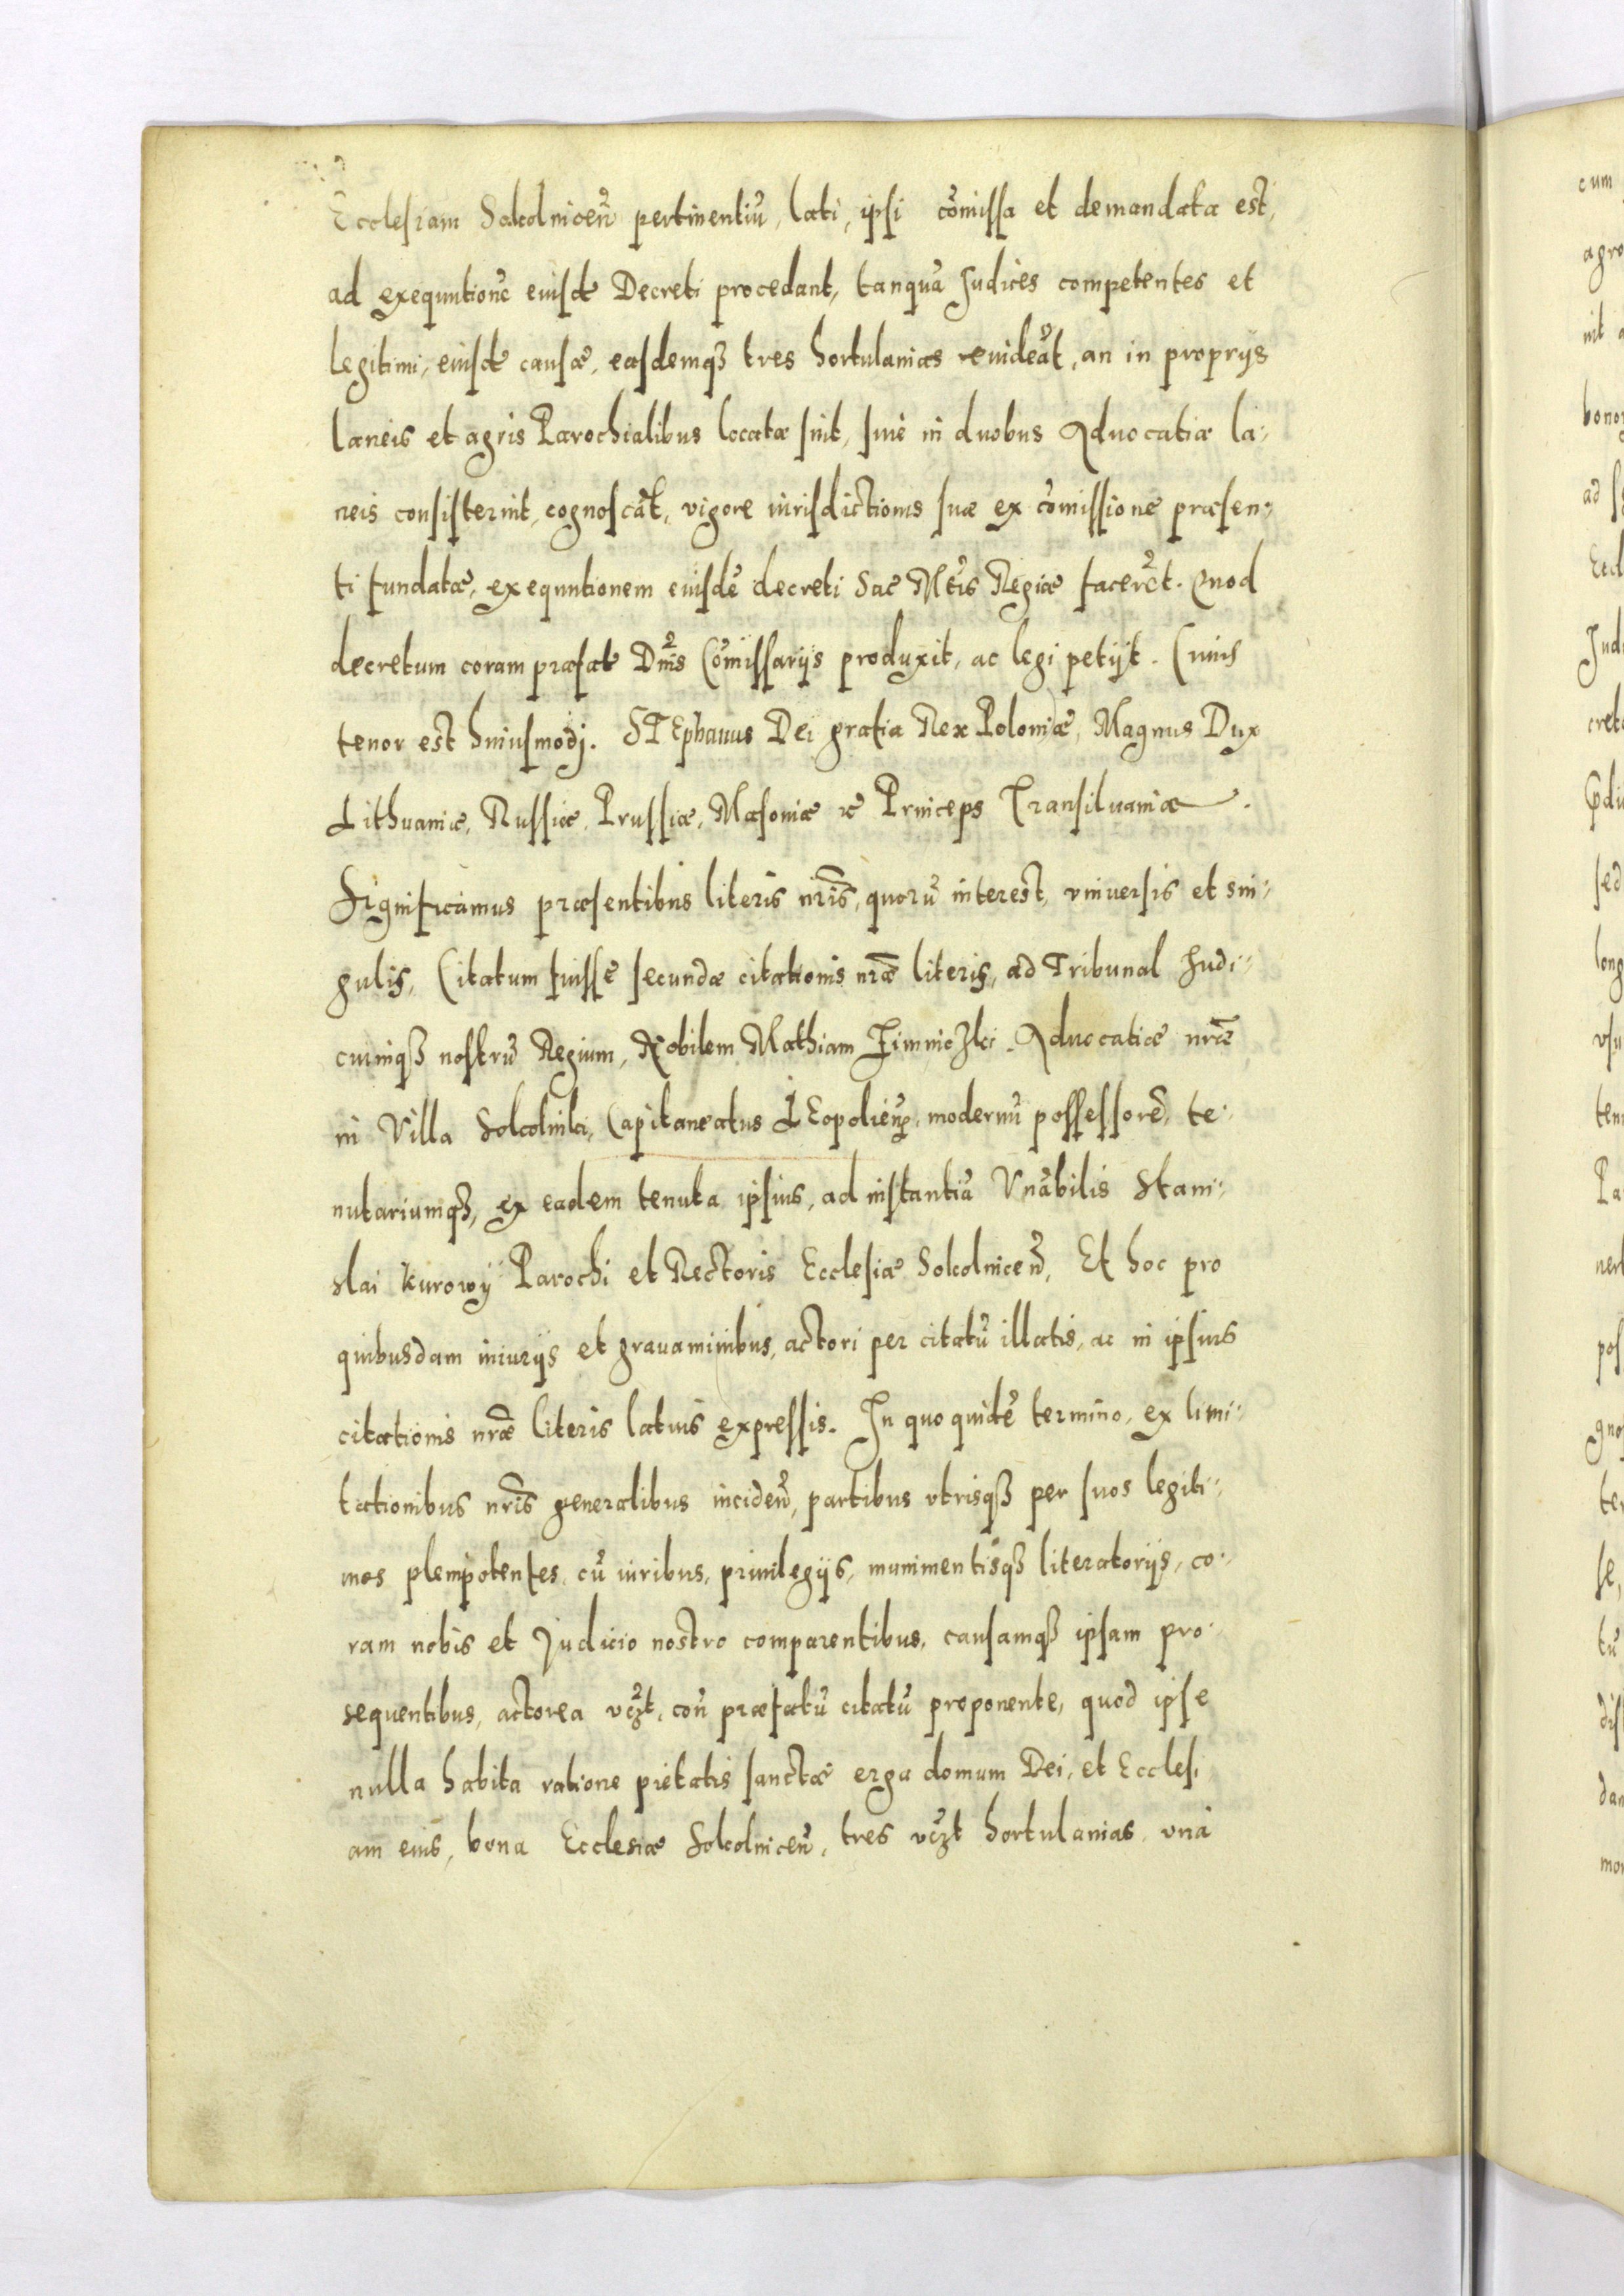 Ecclesiam Sokolniceñ pertinentiũ, lati, ipsi cõmissa et demandata est,
ad exequutionẽ eiusdẽ Decreti procedant, tanquã Judices competentes et
legitimi, eiusdẽ causæ, easdemqз tres hortulanias reuideãt, an in proprijs
laneis et agris Parochialibus locatæ sint, siue in duobus Aduocatiæ la-
neis consisterint, cognoscãt, vigore iurisdictionis suæ ex cõmissione præsen-
ti fundatæ, exequutionem eiusdẽ decreti Sac̃ Mt̃is Regiæ facerẽt. Quod
decretum coram præfat Dñis Cõmissarijs produxit, ac legi petijt. Cuius
tenor est huiusmodj. STEphanus Dei gratia Rex Poloniæ, Magnus Dux
Lithuaniæ, Russiæ, Prussiæ, Masoniæ ꝛc Princeps Transiluaniæ.
Significamus præsentibus literis nr̃is, quorũ interest, vniuersis et sin-
gulis, Citatum fuisse secundæ citationis nr̃æ literis, ad Tribunal Judi-
ciumqз nostrũ Regium, Nobilem Mathiam Aduocatiæ nr̃æ
in Villa Sokolniki, Capitaneatus LEopolieñ, modernũ possessorẽ, te-
nutariumqз, ex eadem tenuta ipsius, ad instantiã Vnãbilis Stani-
slai Kurowÿ Parochi et Rectoris Ecclesiæ Sokolniceñ, Et hoc pro
quibusdam iniurijs et grauaminibus, actori per citatũ illatis, ac in ipsius
citationis nr̃æ literis latius expressis. In quo quidẽ termino, ex limi-
tationibus nr̃is generalibus incideñ, partibus vtrisqз per suos legiti-
mos plenipotentes, cũ iuribus, priuilegijs, munimentisqз literatorijs, co-
ram nobis et Judicio nostro comparentibus, causamqз ipsam pro-
sequentibus, actorea vcz̃t, coñ præfatũ citatũ proponente, quod ipse
nulla habita ratione pietatis sanctæ erga domum Dei, et Ecclesi
am eius, bona Ecclesiæ Sokolniceñ, tres vcz̃t hortulanias, vnà